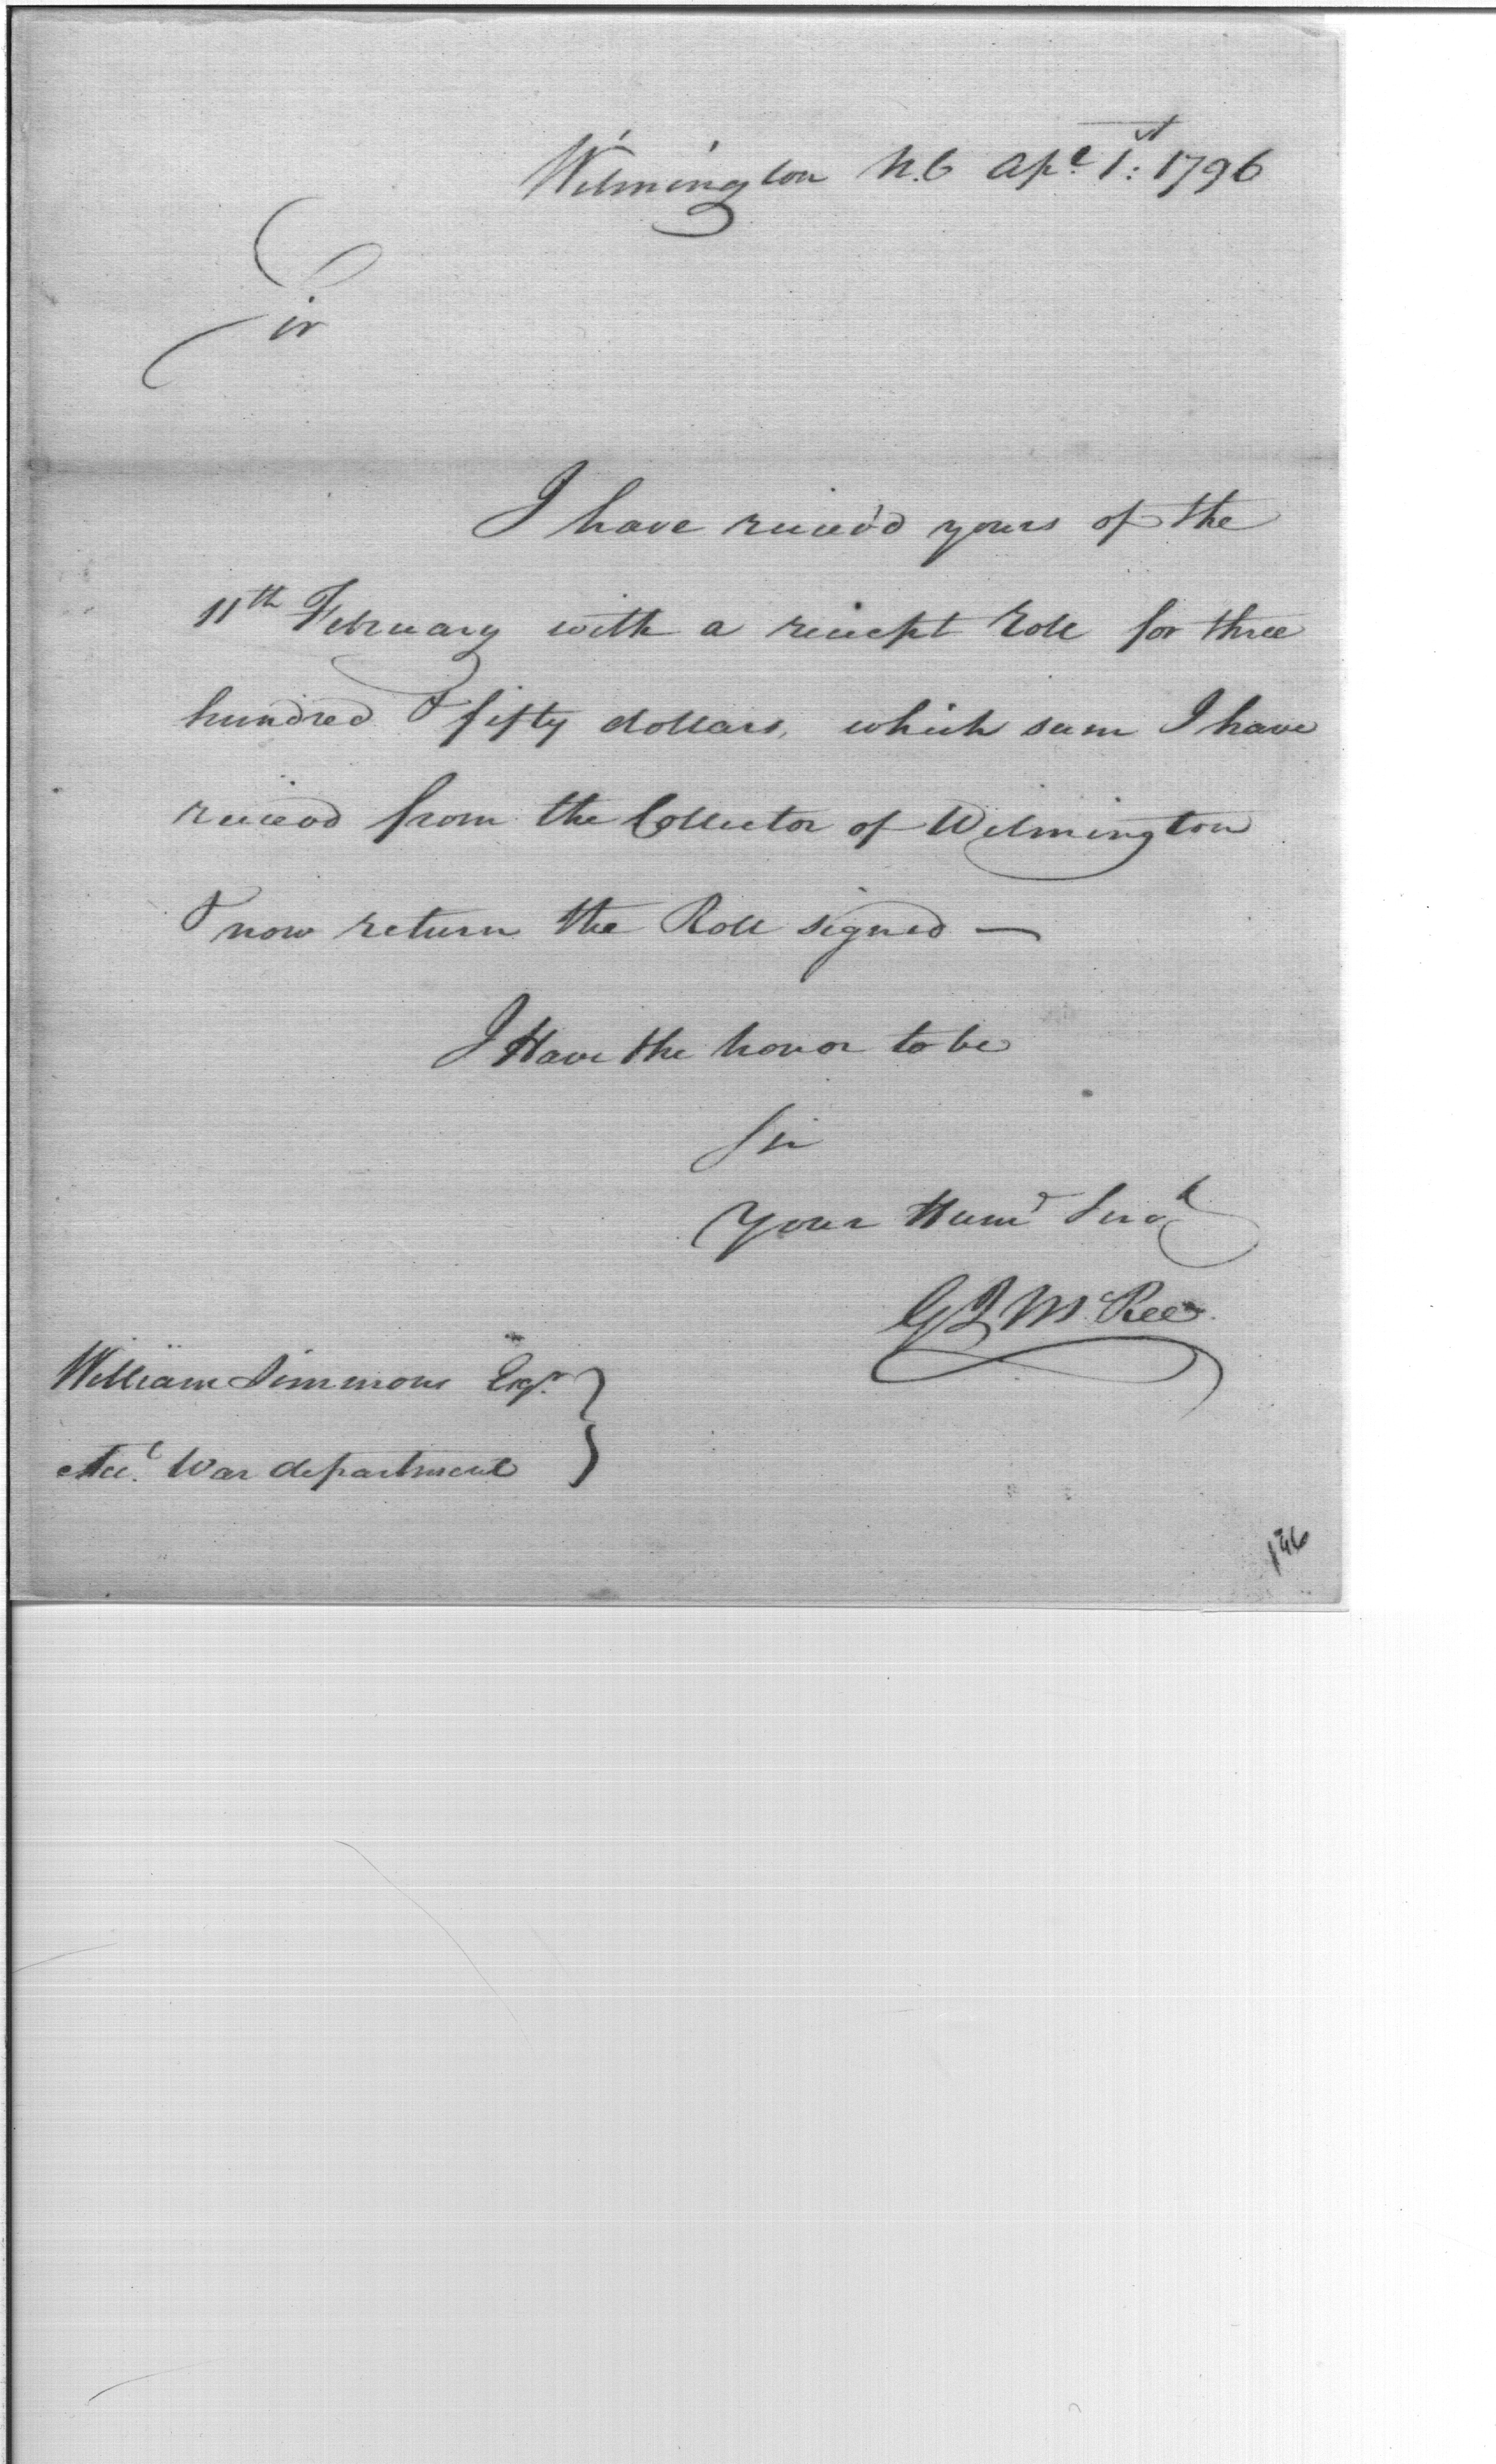 Wilmington N.C Apl. 1st: 1796
Sir
I have reciev'd yours of the
11th February with a reciept Role for three
hundred & fifty dollars, which sum I have
recievd from the Collector of Wilmington
& now return the Roll signed —
I Have the honor to be
Sir
Your Humd Servt
G J McRee
William Simmons Esqr.
Acct. War department